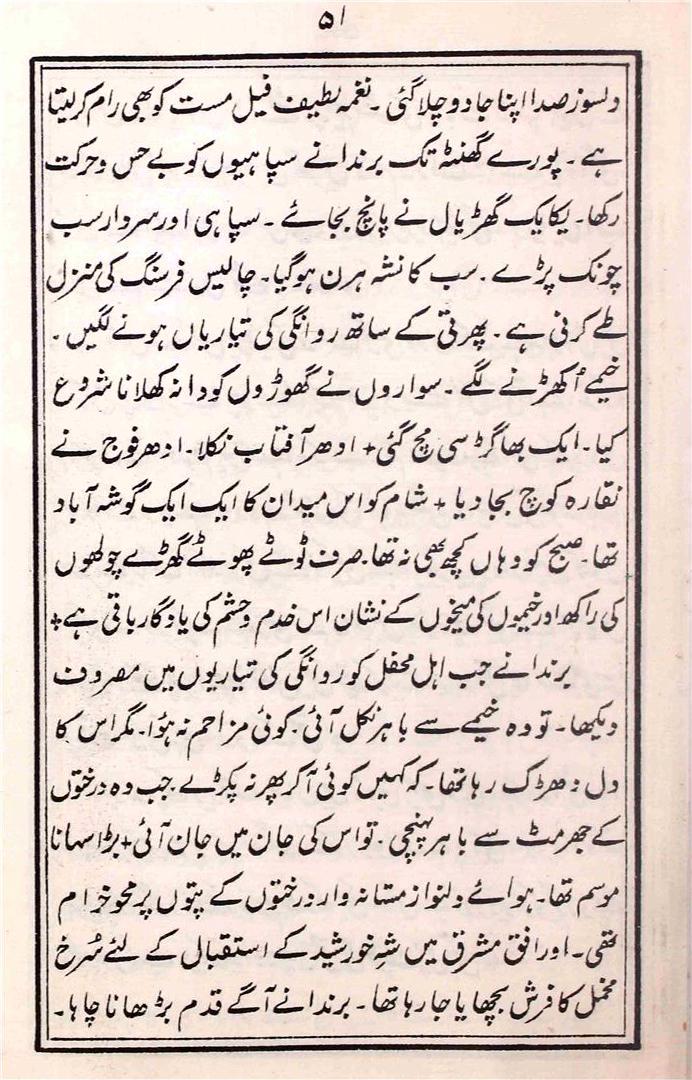 ۵۱
دلسوز صدا اپنا جادو چلا گئی ۔ نغمہ لطیف فیل مست کو بھی رام کر لیتا
ہے ۔ پورے گھنٹہ تک برندا نے سپاہیوں کو بے حس و حرکت
رکھا ۔ یکایک گھڑیال نے پانچ بجائے ۔ سپاہی اور سردار سب
چونک پڑے ۔ سب کا نشہ ہرن ہوگیا ۔ چالیس فرسنگ کی منزل
طے کرنی ہے ۔ پھرتی کے ساتھ روانگی کی تیاریاں ہونے لگیں ۔
خیمے اُکھڑنے لگے ۔ سواروں نے گھوڑوں کو دانہ کھلانا شروع
کیا ۔ ایک بھاگڑ سی مچ گئی + ادھر آفتاب نکلا ۔ ادھر فوج نے
نقارہ کوچ بجا دیا + شام کو اس میدان کا ایک ایک گوشہ آباد
تھا ۔ صبح کو وہاں کچھ بھی نہ تھا ۔ صرف ٹوٹے پھوٹے گھڑے چولھوں
کی راکھ اور خیموں کی میخوں کے نشان اس خدم و حشم کی یادگار باقی ہے +
برندا نے جب اہل محفل کو روانگی کی تیاریوں میں مصروف
دیکھا ۔ تو وہ خیمے سے باہر نکل آئی ۔ کوئی مزاحم نہ ہُوا ۔ مگر اس کا
دل دھڑک رہا تھا ۔ کہ کہیں کوئی آکر پھر نہ پکڑے ۔ جب وہ درختوں
کے جھرمٹ سے باہر پہنچی ۔ تو اس کی جان میں جان آئی + بڑا سہانا
موسم تھا ۔ ہوائے دلنواز مستانہ وار درختوں کے پتوں پر محو خرام
تھی ۔ اور افق مشرق میں شہِ خورشید کے استقبال کے لئے سُرخ
مخمل کا فرش بچھایا جا رہا تھا ۔ برندا نے آگے قدم بڑھانا چاہا ۔